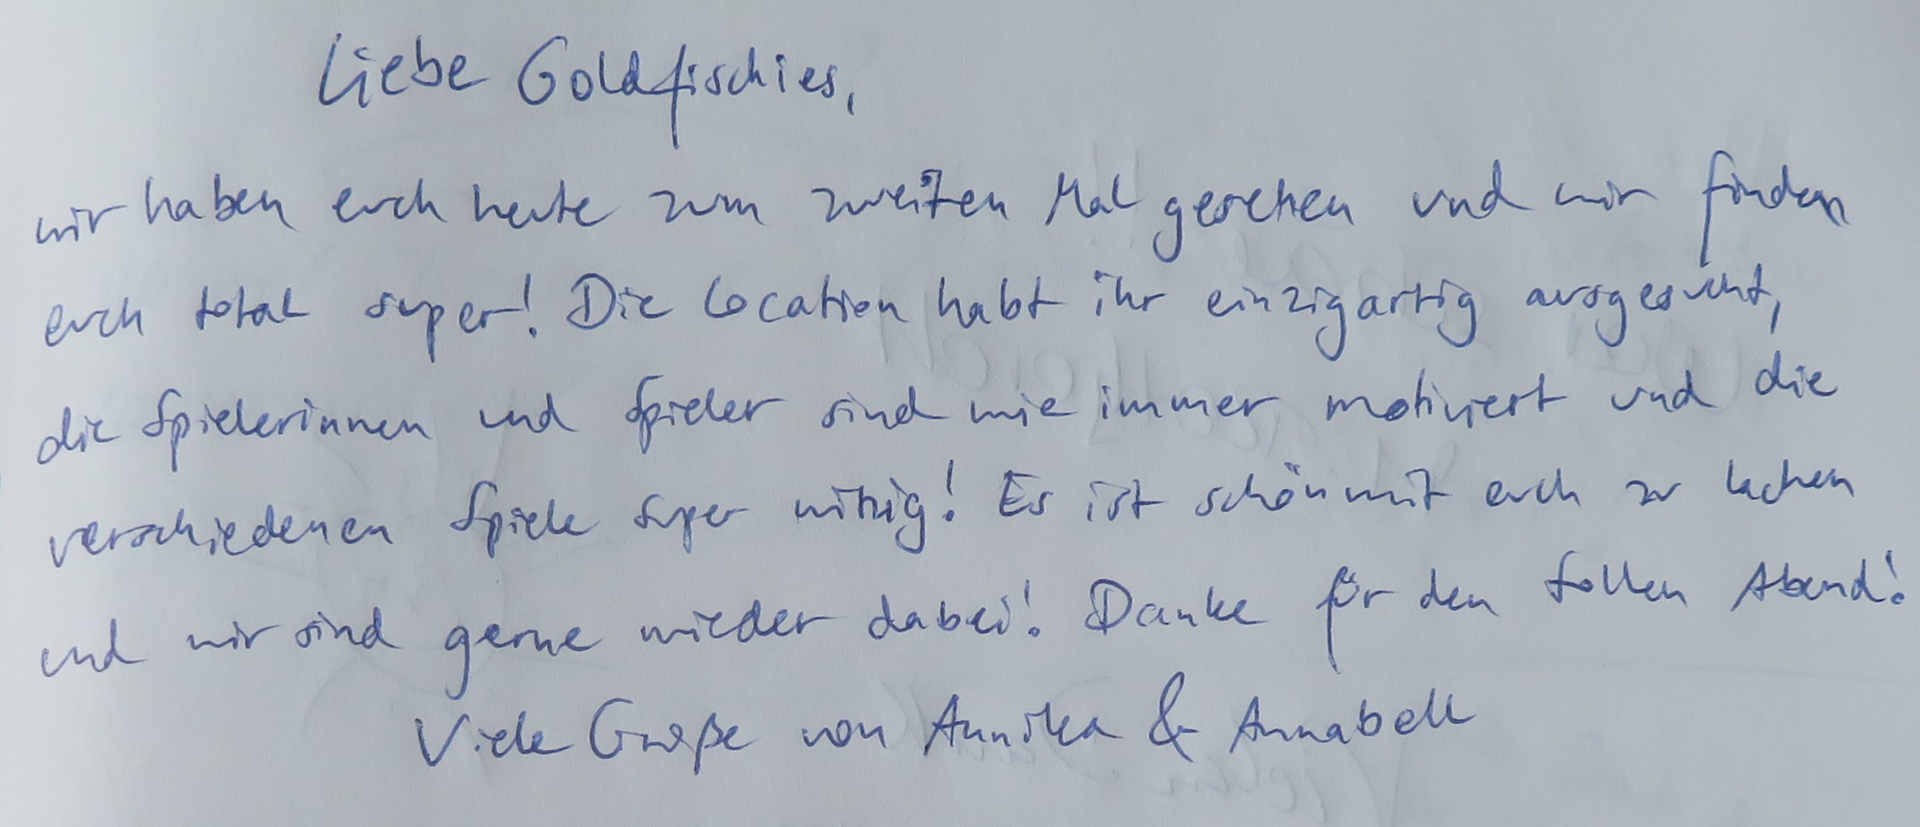 Liebe Goldfischies,
wir haben euch heute zum zweiten Mal gesehen und wir finden
euch total super! Die Location habt ihr einzigartig ausgesucht,
die Spielerinnen und Spieler sind wie immer motiviert und die
verschiedenen Spiele super witzig! Es ist schön mit euch zu lachen
und wir sind gerne wieder dabei! Danke für den tollen Abend!
Viele Grüße von Annika & Annabell